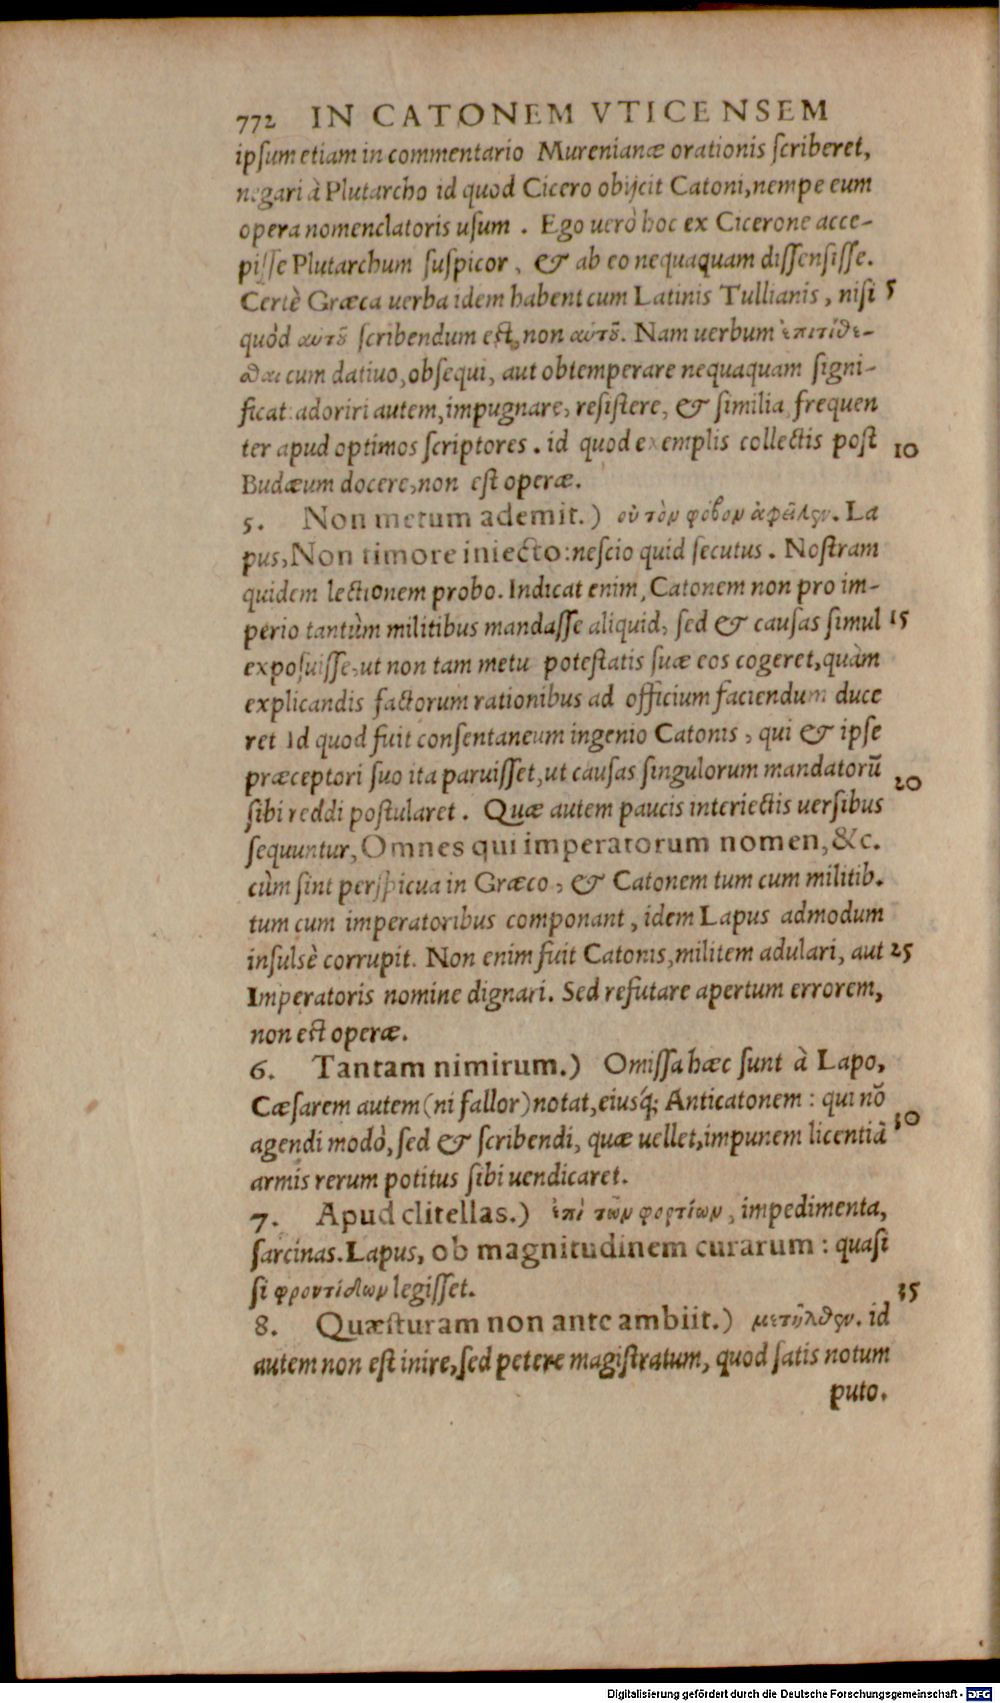 772 IN CATONEM VTICENSEM
ipsum etiam in commentario Murenianæ orationis scriberet,
negari à Plutarcho id quod Cicero obijcit Catoni, nempe eum
opera nomenclatoris usum. Ego uerò hoc ex Cicerone acce-
pisse Plutarchum suspicor, & ab eo nequaquam dissensisse.
Certè Græca uerba idem habent cum Latinis Tullianis, nisi 5
quòd αὐτοῦ scribendum est, non αὑτοῦ. Nam uerbum ἐπιτίθε-
σθαι cum datiuo, obsequi, aut obtemperare nequaquam signi-
ficat: adoriri autem, impugnare, resistere, & similia frequen
ter apud optimos scriptores. id quod exemplis collectis post 10
Budæum docere, non est operæ.
5. Non metum ademit.) οὐ τὸν φόβον ἀφεῖλεν. La
pus, Non timore iniecto: nescio quid secutus. Nostram
quidem lectionem probo. Indicat enim, Catonem non pro im-
perio tantùm militibus mandasse aliquid, sed & causas simul 15
exposuisse, ut non tam metu potestatis suæ eos cogeret, quàm
explicandis factorum rationibus ad officium faciendum duce
ret Id quod fuit consentaneum ingenio Catonis, qui & ipse
præceptori suo ita paruisset, ut causas singulorum mandatorū
20
sibi reddi postularet. Quæ autem paucis interiectis uersibus
sequuntur, Omnes qui imperatorum nomen, &c.
cùm sint perspicua in Græco, & Catonem tum cum militib.
tum cum imperatoribus componant, idem Lapus admodum
insulsè corrupit. Non enim fuit Catonis, militem adulari, aut 25
Imperatoris nomine dignari. Sed refutare apertum errorem,
non est operæ.
6. Tantam nimirum.) Omissa hæc sunt à Lapo,
Cæsarem autem (ni fallor) notat, eiusq́; Anticatonem: qui nō
agendi modò, sed & scribendi, quæ uellet, impunem licentiā 30
armis rerum potitus sibi uendicaret.
7. Apud clitellas.) ἐπὶ τῶν φορτίων, impedimenta,
sarcinas. Lapus, ob magnitudinem curarum: quasi
si φροντίδων legisset.
35
8. Quæsturam non ante ambiit.) μετῆλθεν. id
autem non est inire, sed petere magistratum, quod satis notum
puto.
Digitalisierung gefördert durch die Deutsche Forschungsgemeinschaft - DFG